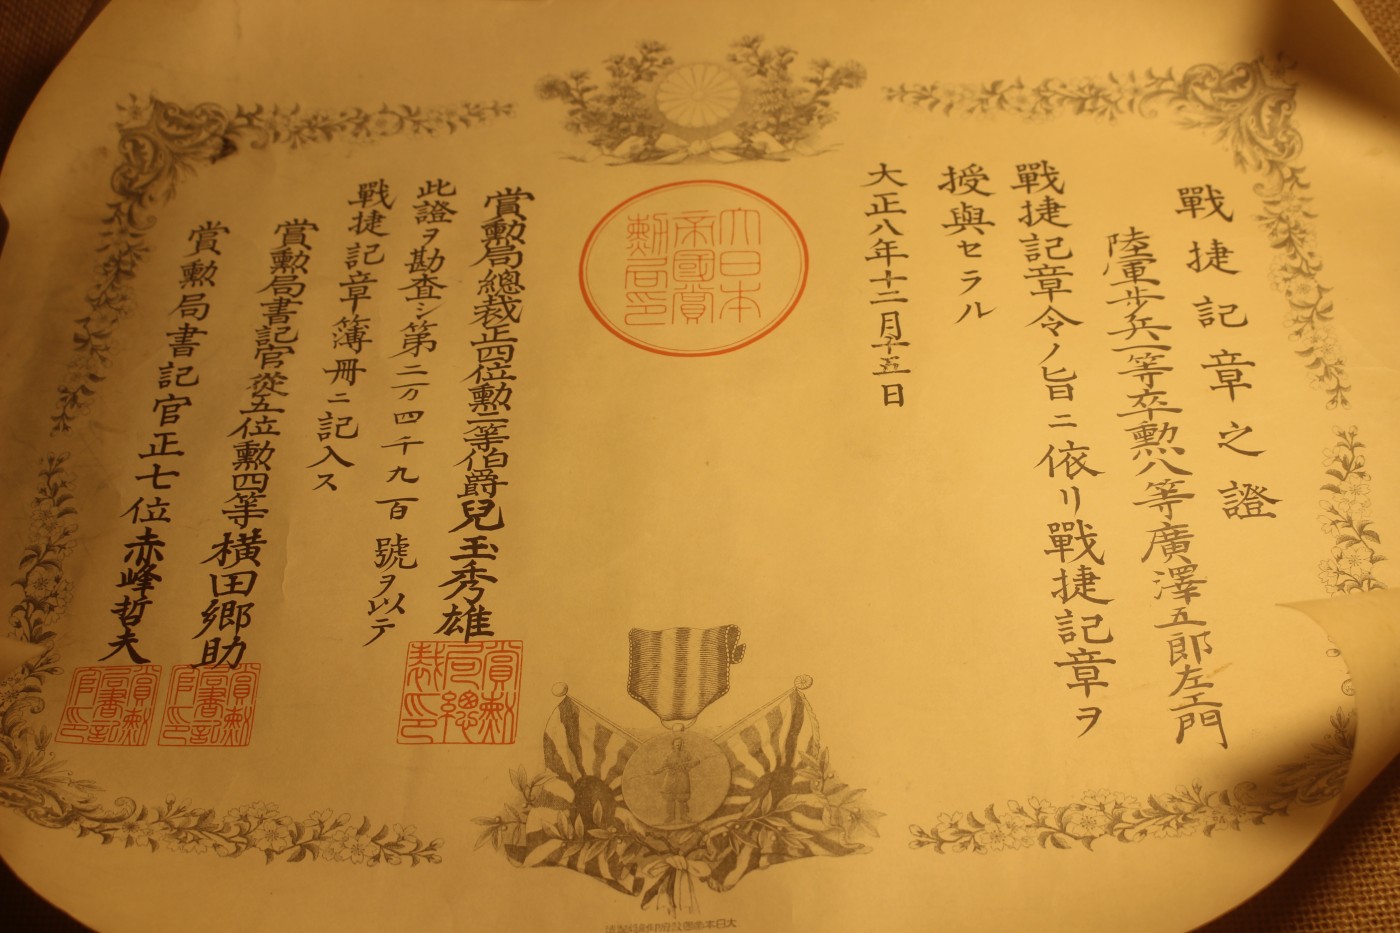 戰捷記章之證
陸軍歩兵一等卒勲八等廣澤五郎左エ門
戰捷記章令ノ旨ニ依リ戰捷記章ヲ
授與セラル
大正八年十二月十五日
大日本
帝國賞
勲局印
賞勲局總裁正四位勲二等伯爵兒玉秀雄
賞勲
局總
裁印
此證ヲ勘査シ第二万四千九百號ヲ以テ
戰捷記章ノ簿冊ニ記入ス
賞勲局書記官從五位勲四等横田郷助
賞勲
局書記
官印
賞勲局書記官正七位赤峰哲夫
賞勲
局書記
官印